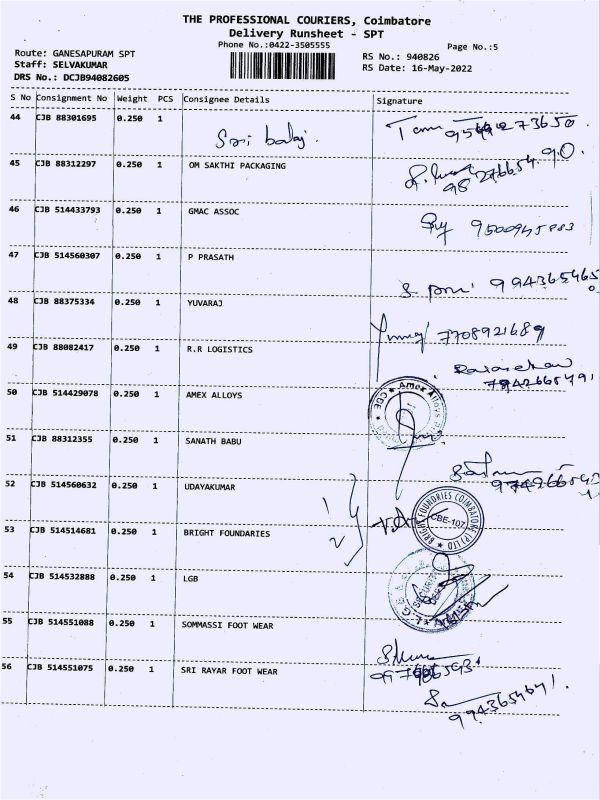 THE PROFESSIONAL COURIERS, Coimbatore
Delivery Runsheet - SPT
Phone No.:0422-3505555
Page No.:5
Route: GANESAPURAM SPT
RS No.: 940826
Staff: SELVAKUMAR
RS Date: 16-May-2022
DRS No.: DCJB94082605
S No Consignment No Weight PCS Consignee Details Signature
44 CJB 88301695 0.250 1 Sri balaj.
45 CJB 88312297 0.250 1 OM SAKTHI PACKAGING
46 CJB 514433793 0.250 1 GMAC ASSOC
47 CJB 514560307 0.250 1 P PRASATH
48 CJB 88375334 0.250 1 YUVARAJ 7708921689
49 CJB 88082417 0.250 1 R.R LOGISTICS
50 CJB 514429078 0.250 1 AMEX ALLOYS
51 CJB 88312355 0.250 1 SANATH BABU
52 CJB 514560632 0.250 1 UDAYAKUMAR
BRIGHT FOUNDRIES COIMBATORE (P) LTD
CBE-107
53 CJB 514514681 0.250 1 BRIGHT FOUNDARIES
54 CJB 514532888 0.250 1 LGB
55 CJB 514551088 0.250 1 SOMMASSI FOOT WEAR
56 CJB 514551075 0.250 1 SRI RAYAR FOOT WEAR